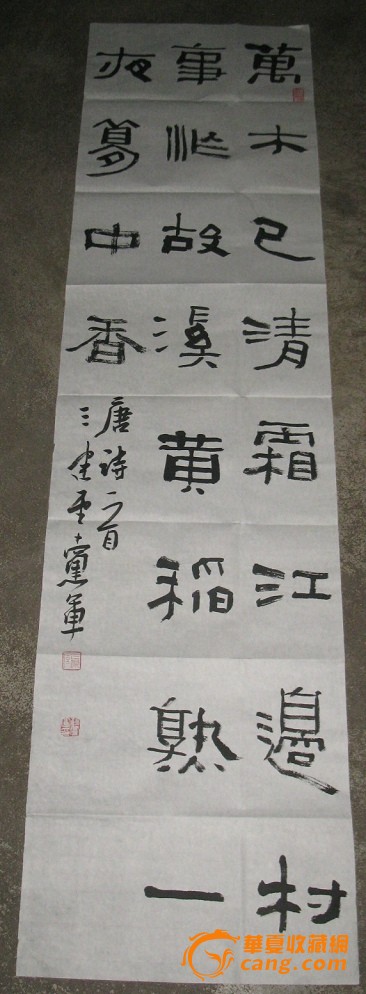 萬木已清霜江邊村
事忙故溪黄稻熟一
夜夢中香
唐詩一首
華夏收藏網
cang.com